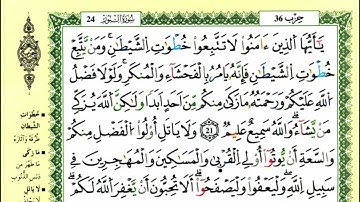 حِزْب 36
سُورَةُ النُّور 24
يَـٰٓأَيُّهَا ٱلَّذِينَ ءَامَنُوا۟ لَا تَتَّبِعُوا۟ خُطُوَٰتِ ٱلشَّيْطَـٰنِ وَمَن يَتَّبِعْ
خُطُوَٰتِ ٱلشَّيْطَـٰنِ فَإِنَّهُۥ يَأْمُرُ بِٱلْفَحْشَآءِ وَٱلْمُنكَرِ وَلَوْلَا فَضْلُ
ٱللَّهِ عَلَيْكُمْ وَرَحْمَتُهُۥ مَا زَكَىٰ مِنكُم مِّنْ أَحَدٍ أَبَدًا وَلَـٰكِنَّ ٱللَّهَ يُزَكِّى
مَن يَشَآءُ وَٱللَّهُ سَمِيعٌ عَلِيمٌ 21 وَلَا يَأْتَلِ أُو۟لُوا۟ ٱلْفَضْلِ مِنكُمْ
وَٱلسَّعَةِ أَن يُؤْتُوٓا۟ أُو۟لِى ٱلْقُرْبَىٰ وَٱلْمَسَـٰكِينَ وَٱلْمُهَـٰجِرِينَ فِى
سَبِيلِ ٱللَّهِ وَلْيَعْفُوا۟ وَلْيَصْفَحُوٓا۟ أَلَا تُحِبُّونَ أَن يَغْفِرَ ٱللَّهُ لَكُمْ
خُطُوَاتِ
الشَّيْطَان
مَا زَكَى
لَا يَأْتَلِ